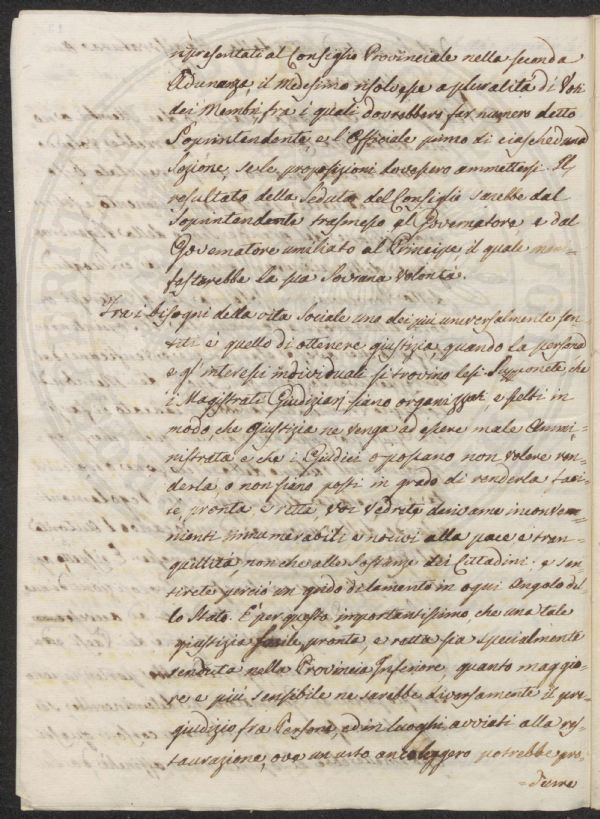 ripresentati al Consiglio Provinciale nella seconda
Adunanza, il Medesimo risolvesse a pluralità di Voti
dei Membri, fra i quali dovrebbero far numero detto
Soprintendente, e l'Officiale primo di ciascheduna
Sezione, se le proposizioni dovessero ammettersi. Il
resultato della Seduta del Consiglio sarebbe dal
Soprintendente trasmesso al Governatore e dal
Governatore umiliato al Principe, il quale mani-
festarebbe la sua Sovrana Volontà.
Tra i bisogni della vita Sociale uno dei più universalmente sen-
titi è quello di ottenere giustizia, quando la persona
e gl'interessi individuali si trovino lesi. Supponete che
i Magistrati Giudiziarj siano organizzati, e scelti in
modo, che Giustizia ne venga ad essere male Ammi-
nistrata e che i Giudici o possano non volere ren-
derla, o non sieno posti in grado di renderla faci-
le, pronta, e retta, voi vedrete derivarne inconve-
nienti innumerabili e nocivi alla pace e tran-
quillità, non che alle Sostanze dei Cittadini; e sen-
tirete perciò un grido di lamento in ogni Angolo del-
lo Stato. È per questo importantissimo, che una tale
giustizia facile, pronta, e retta sia specialmente
renduta nella Provincia Inferiore, quanto maggio-
re e più sensibile ne sarebbe diversamente il pre-
giudizio fra Persone, ed in luoghi avviati alla res-
taurazione, ove un urto anco leggero potrebbe pro-
durre